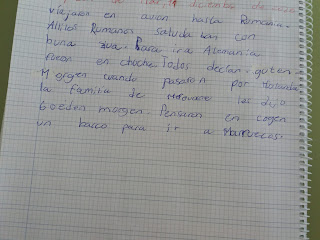 diciembre de
viajaron en avion hasta Rumania.
Allí los Rumanos saludaban con
buna ziua. Para ir a Alemania
fueron en choche. Todos decían. guten
Morgen cuando pasaron por Holanda
la familia de les dijo
Goeden morgen. Pensaron en coger
un barco para ir a Marruecos.